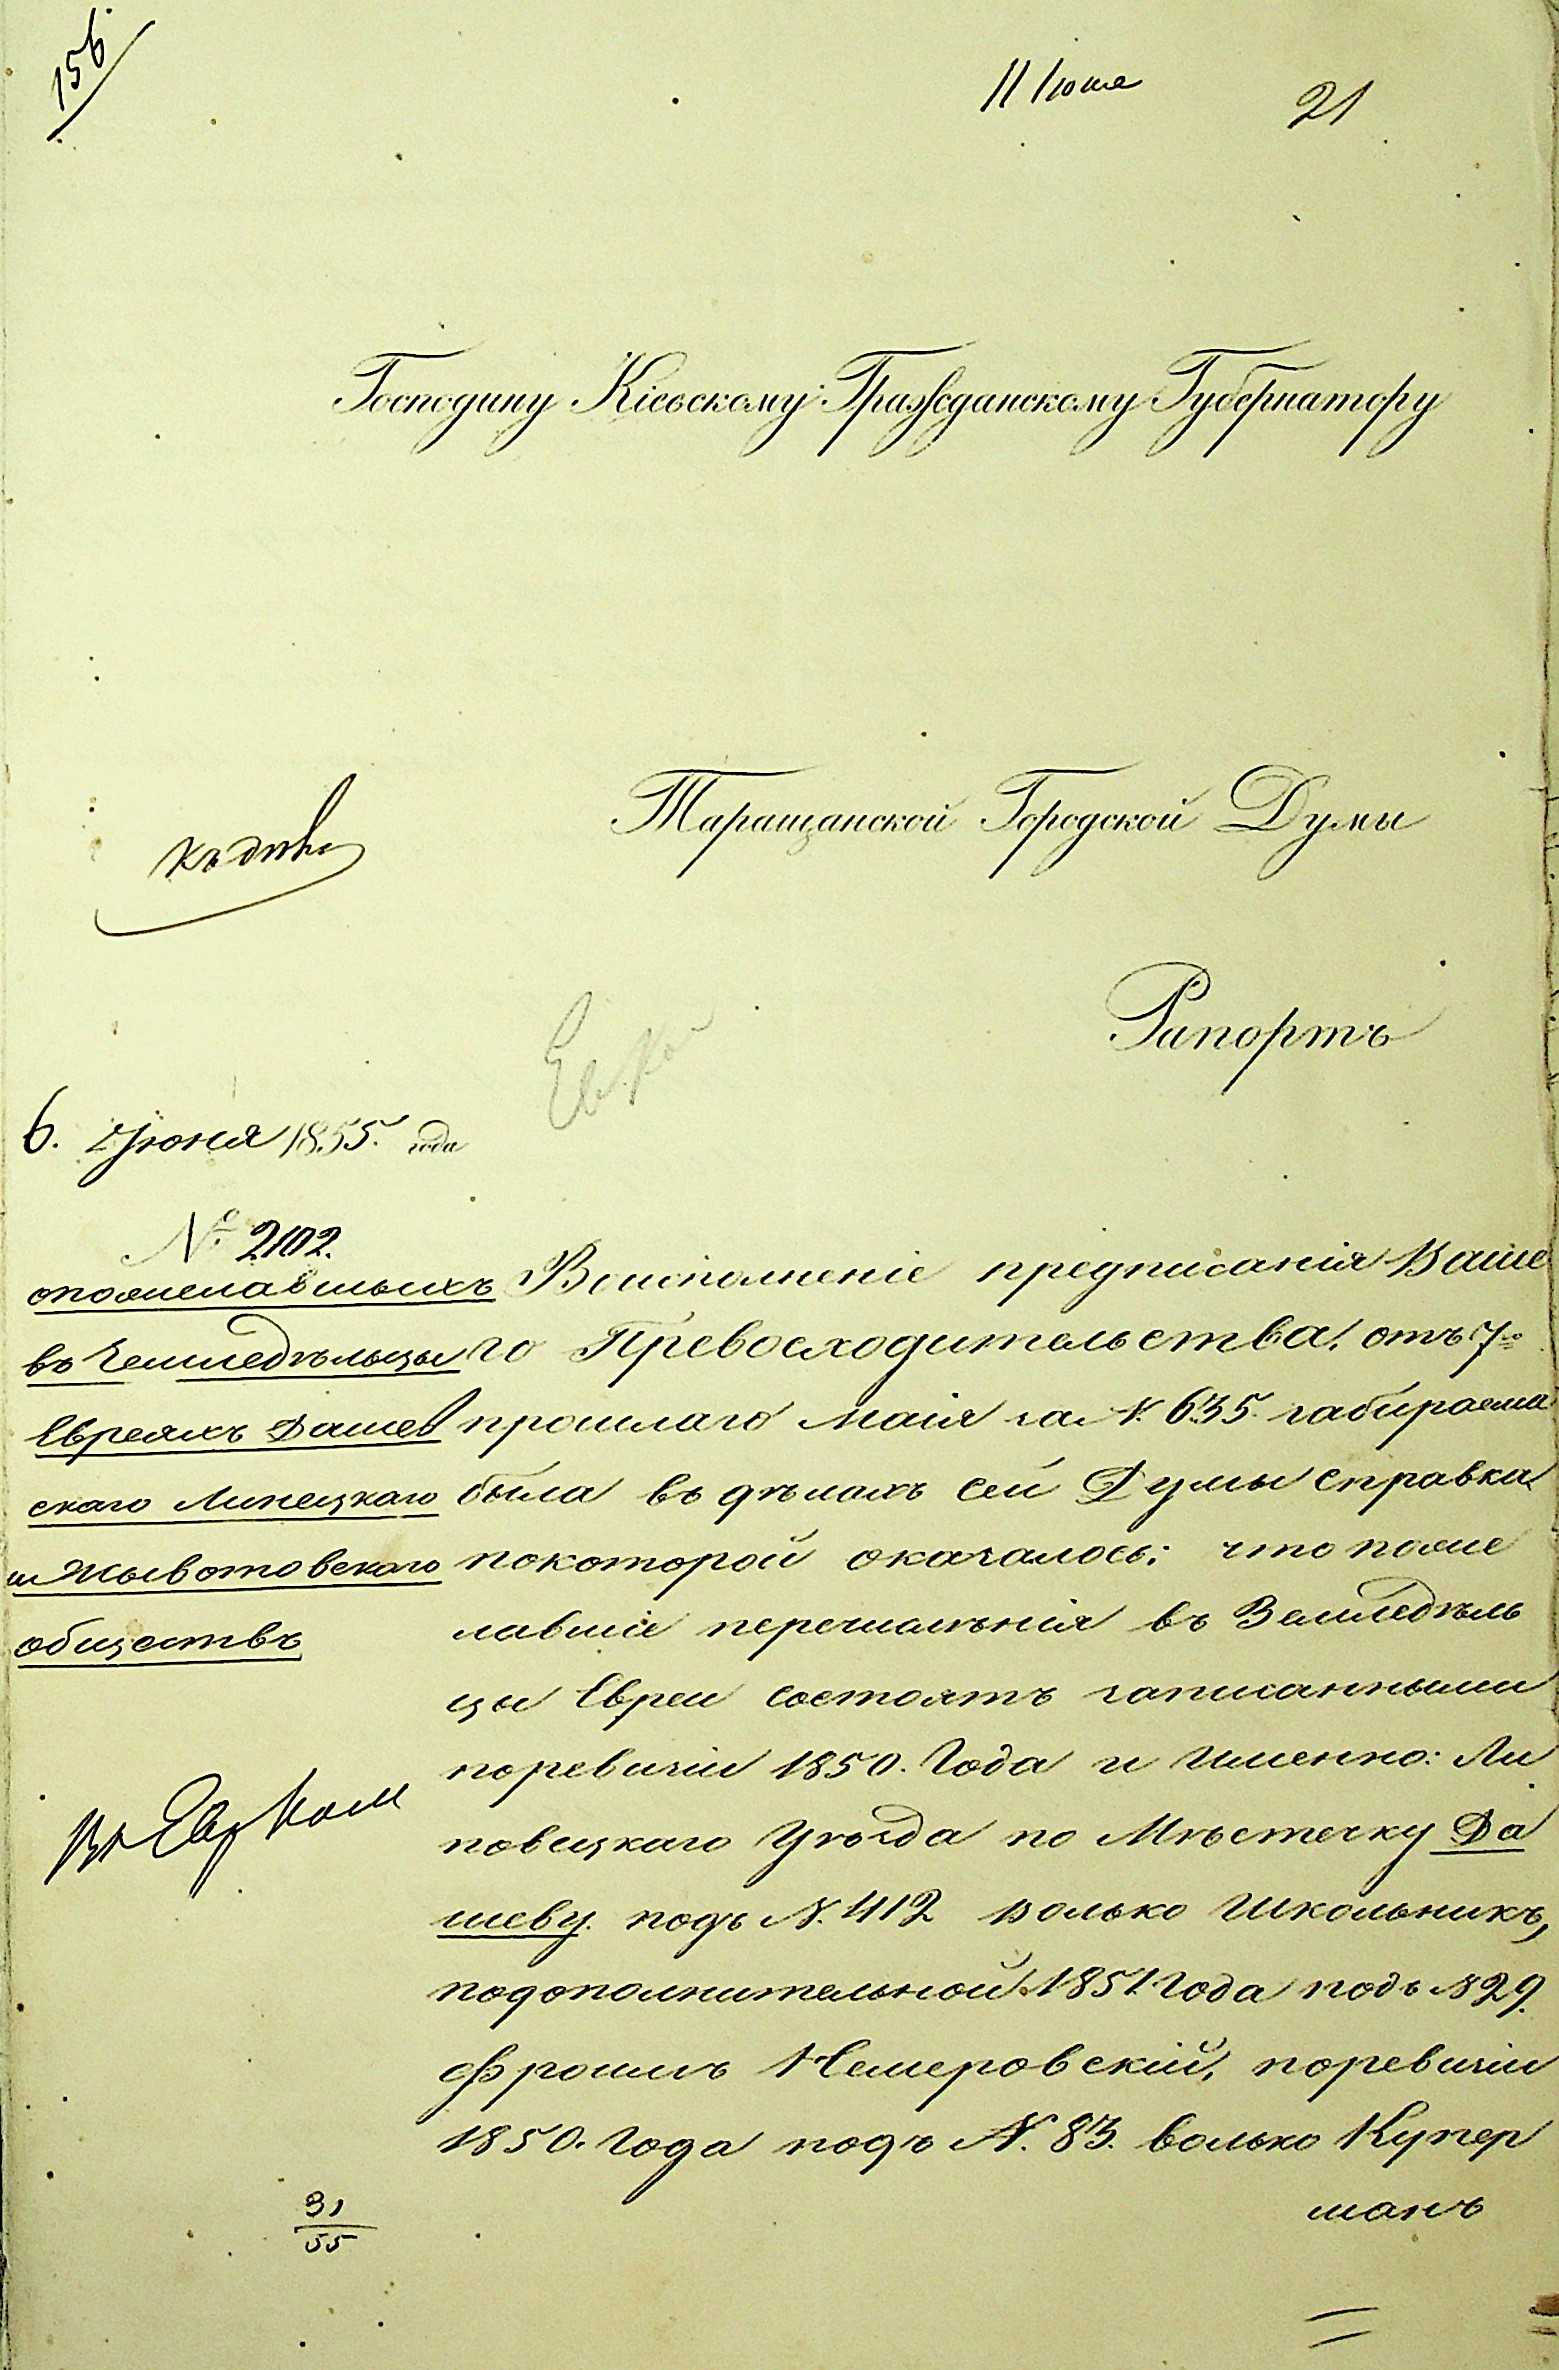 156
11 Іюня
21
Господину Кіевскому Гражданскому Губернатору
Таращанской Городской Думы
къ дѣлу
Рапортъ
Ев. Ко
6. Іюня 1855. года
№ 2102.
опожелавшыхъ
въ Земледѣльцы
Евреяхъ Дашев
скаго Липецкаго
и Жывотовскаго
обществъ
Воисполненіе предписанія Ваше
го Превосходительства, отъ 7го
прошлаго Маія за №. 635. забираема
была въ дѣлахъ сей Думы справка
покоторой оказалось: что поже
лавшіе перечисленія въ Земледѣль
цы Евреи состоятъ записанными
поревизіи 1850. Года и Именно: Ли
повецкаго Уѣзда по Мѣстечку Да
шеву. подъ №. 412 Волько Школьникъ,
подополнительной 1851 Года подъ № 29.
Фроимъ Немеровскій, поревизіи
1850. Года подъ №. 83. Волько Купер
манъ
Въ Евр Ком
31
55